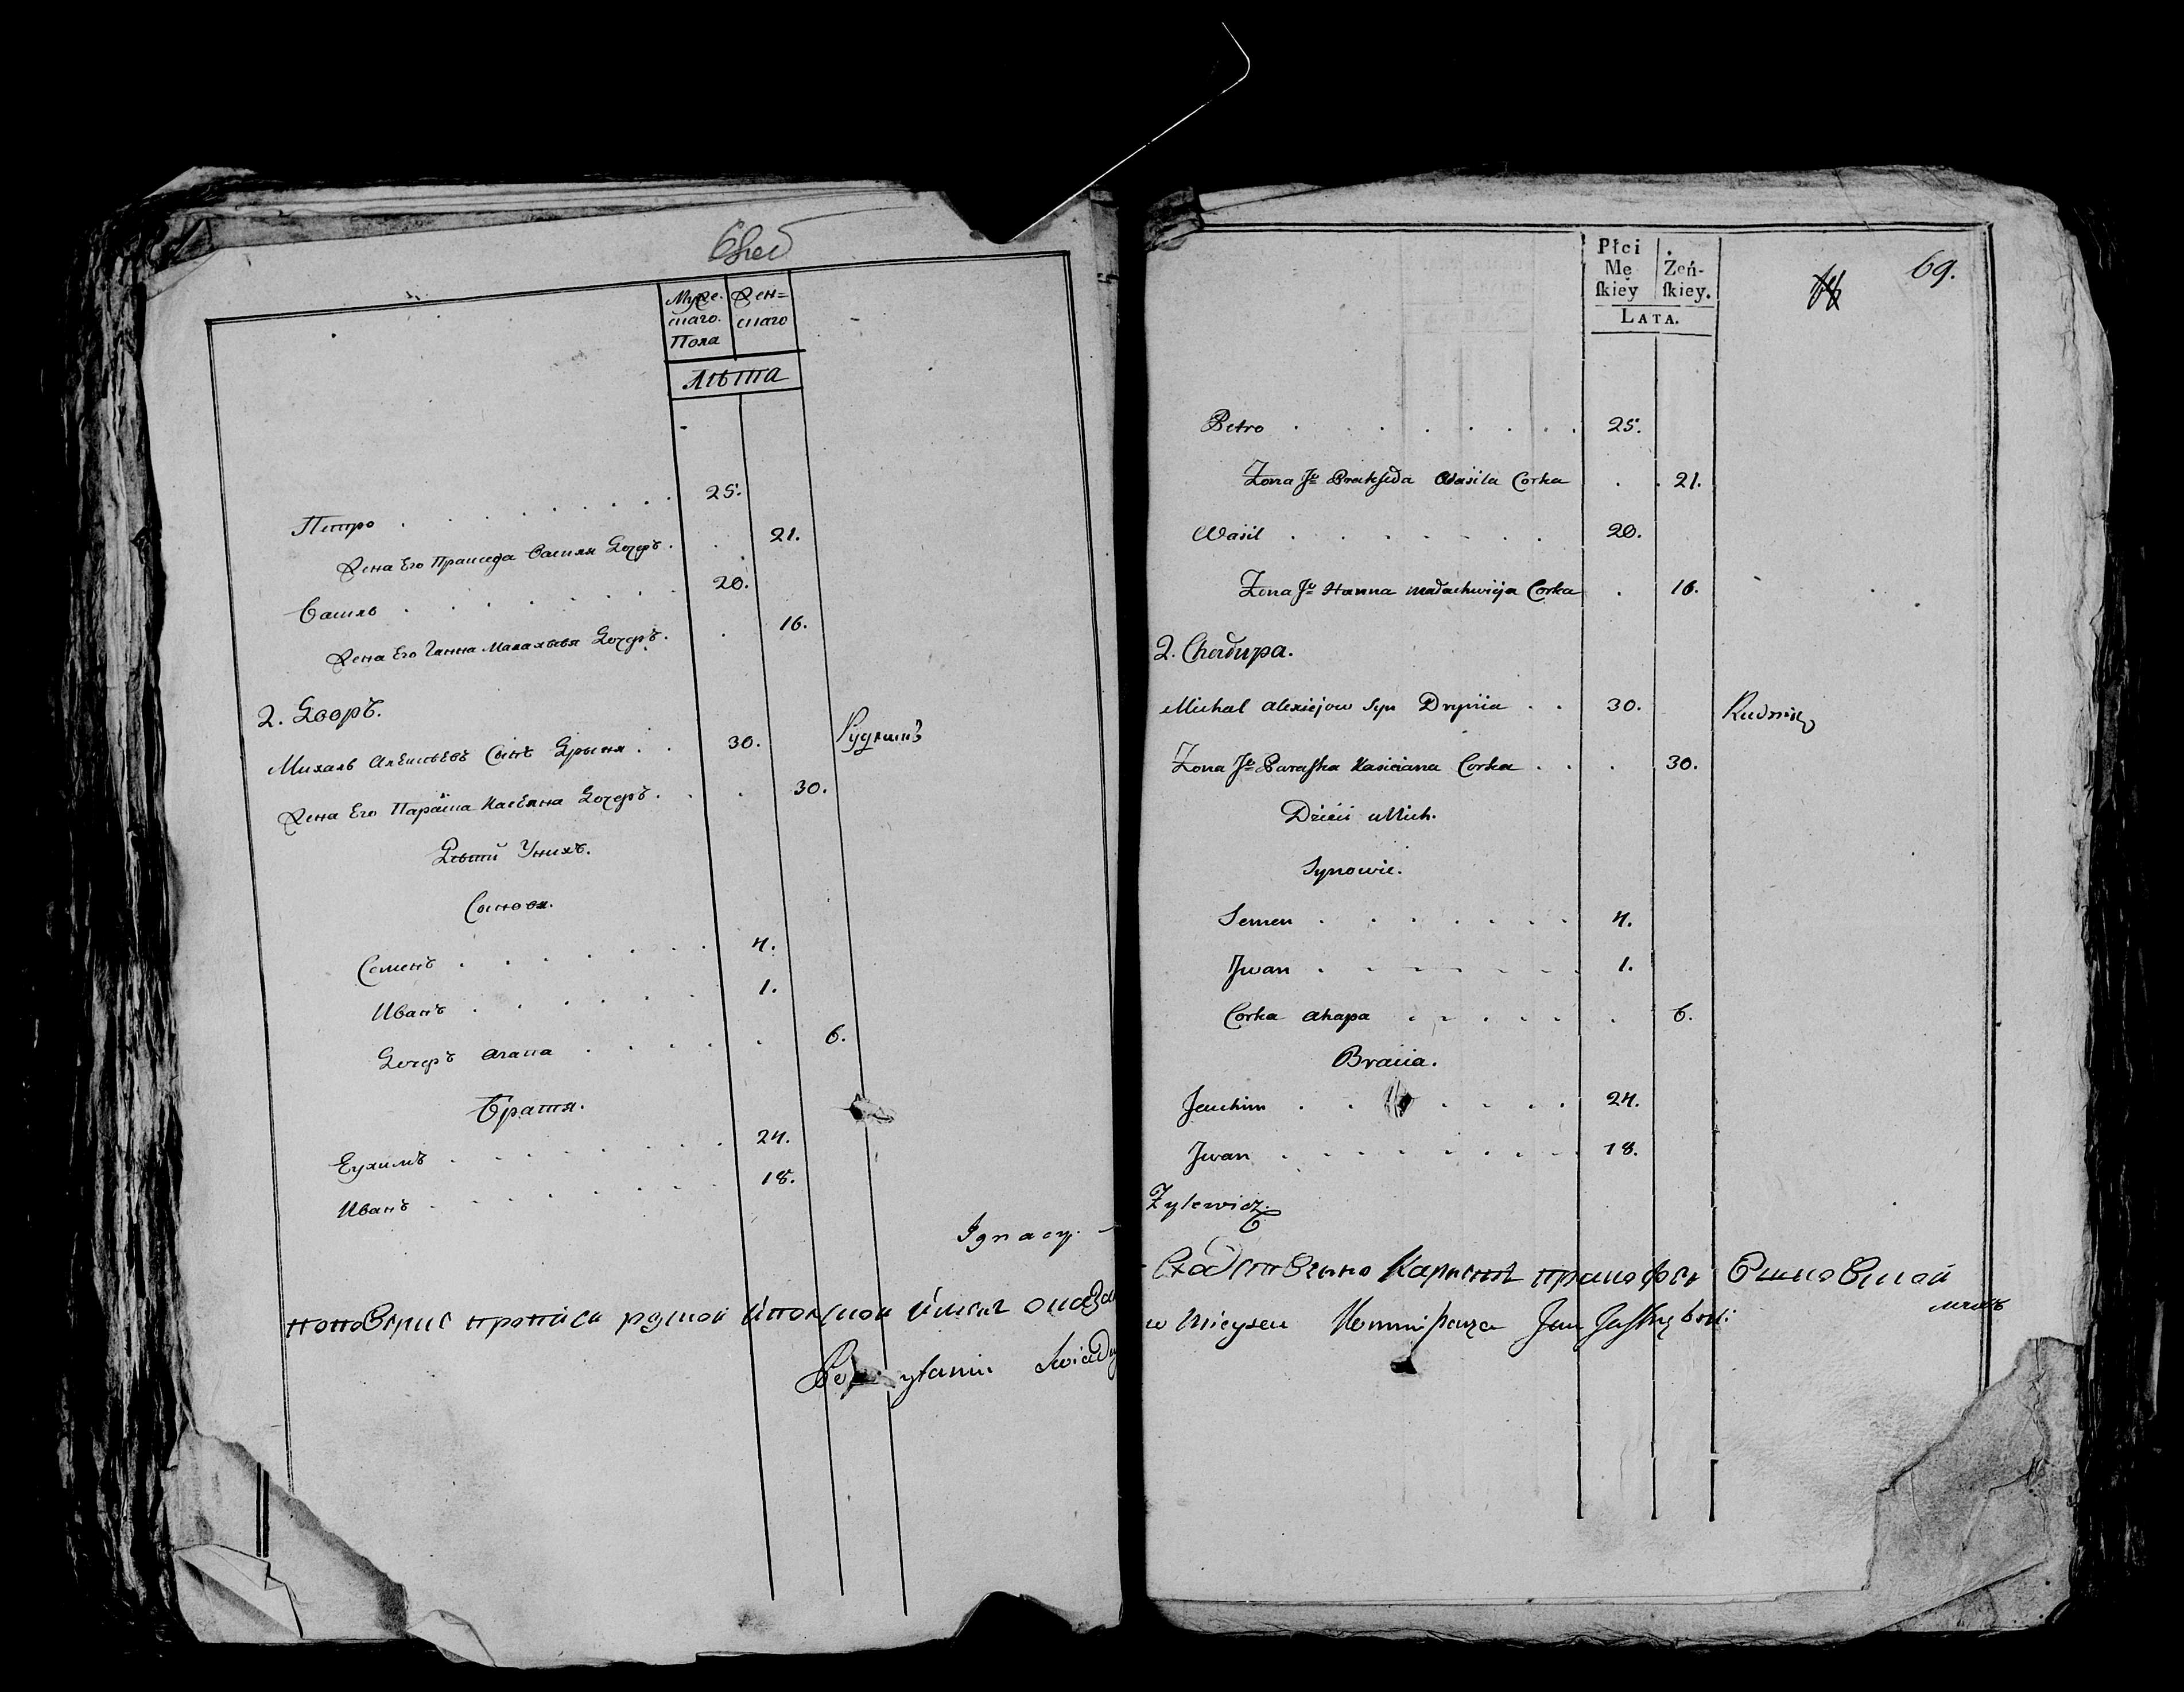 68 об
Муже- Жен-
скаго скаго
Пола
Лѣта
Петро . . . . . . . 25.
Жена Его Пракседа Василя Дочеръ . . . 21.
Василь . . . . . . . 20.
Жена Его Ганна Малахвѣя Дочеръ . . 16.
2. Дворъ.
Михаль Алексѣевъ Сынъ Дрыня . . 30. Рудникъ
Жена Его Параска Касіяна Дочеръ . . . 30.
Дѣти Унихъ.
Сыновя.
Семенъ . . . . . . . 4.
Иванъ . . . . . . 1.
Дочеръ Агапа . . . . . . 6.
Братя.
Еухимъ . . . . . . . 24.
Иванъ . . . . . . . 18.
Ignacy
69.
Płci
Mę Żeń-
ſkiey ſkiey.
LATA.
Petro . . . . . . . . 25.
Zona Jº Prakseda Wasila Corka . . 21.
Wasil . . . . . . . 20.
Zona Jº Hanna Małachwieja Corka . 16.
2. Chałupa.
Michał Alexiejow Syn Drynia . . 30. Rudnik
Zona Jº Paraſka Kasiana Corka . . . 30.
Dzieci u Nich.
Synowie.
Semen . . . . . . . 4.
Jwan . . . . . . . 1.
Corka Ahapa . . . . . . 6.
Bracia.
Jeuchim . . . . . . . 24.
Jwan . . . . . . . . 18.
Zylewicz
w Mieyscu Kommiſsarza Jan